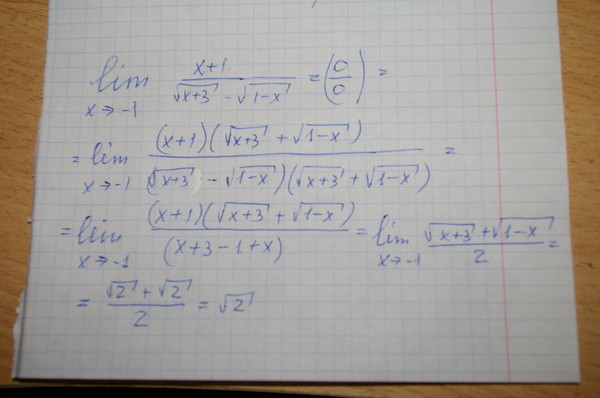 lim x→-1 (x+1)/(√(x+3) - √(1-x)) = (0/0) =
= lim x→-1 ((x+1)(√(x+3) + √(1-x)))/((√(x+3) - √(1-x))(√(x+3) + √(1-x))) =
= lim x→-1 ((x+1)(√(x+3) + √(1-x)))/((x+3-1+x)) = lim x→-1 (√(x+3) + √(1-x))/2 =
= (√2 + √2)/2 = √2